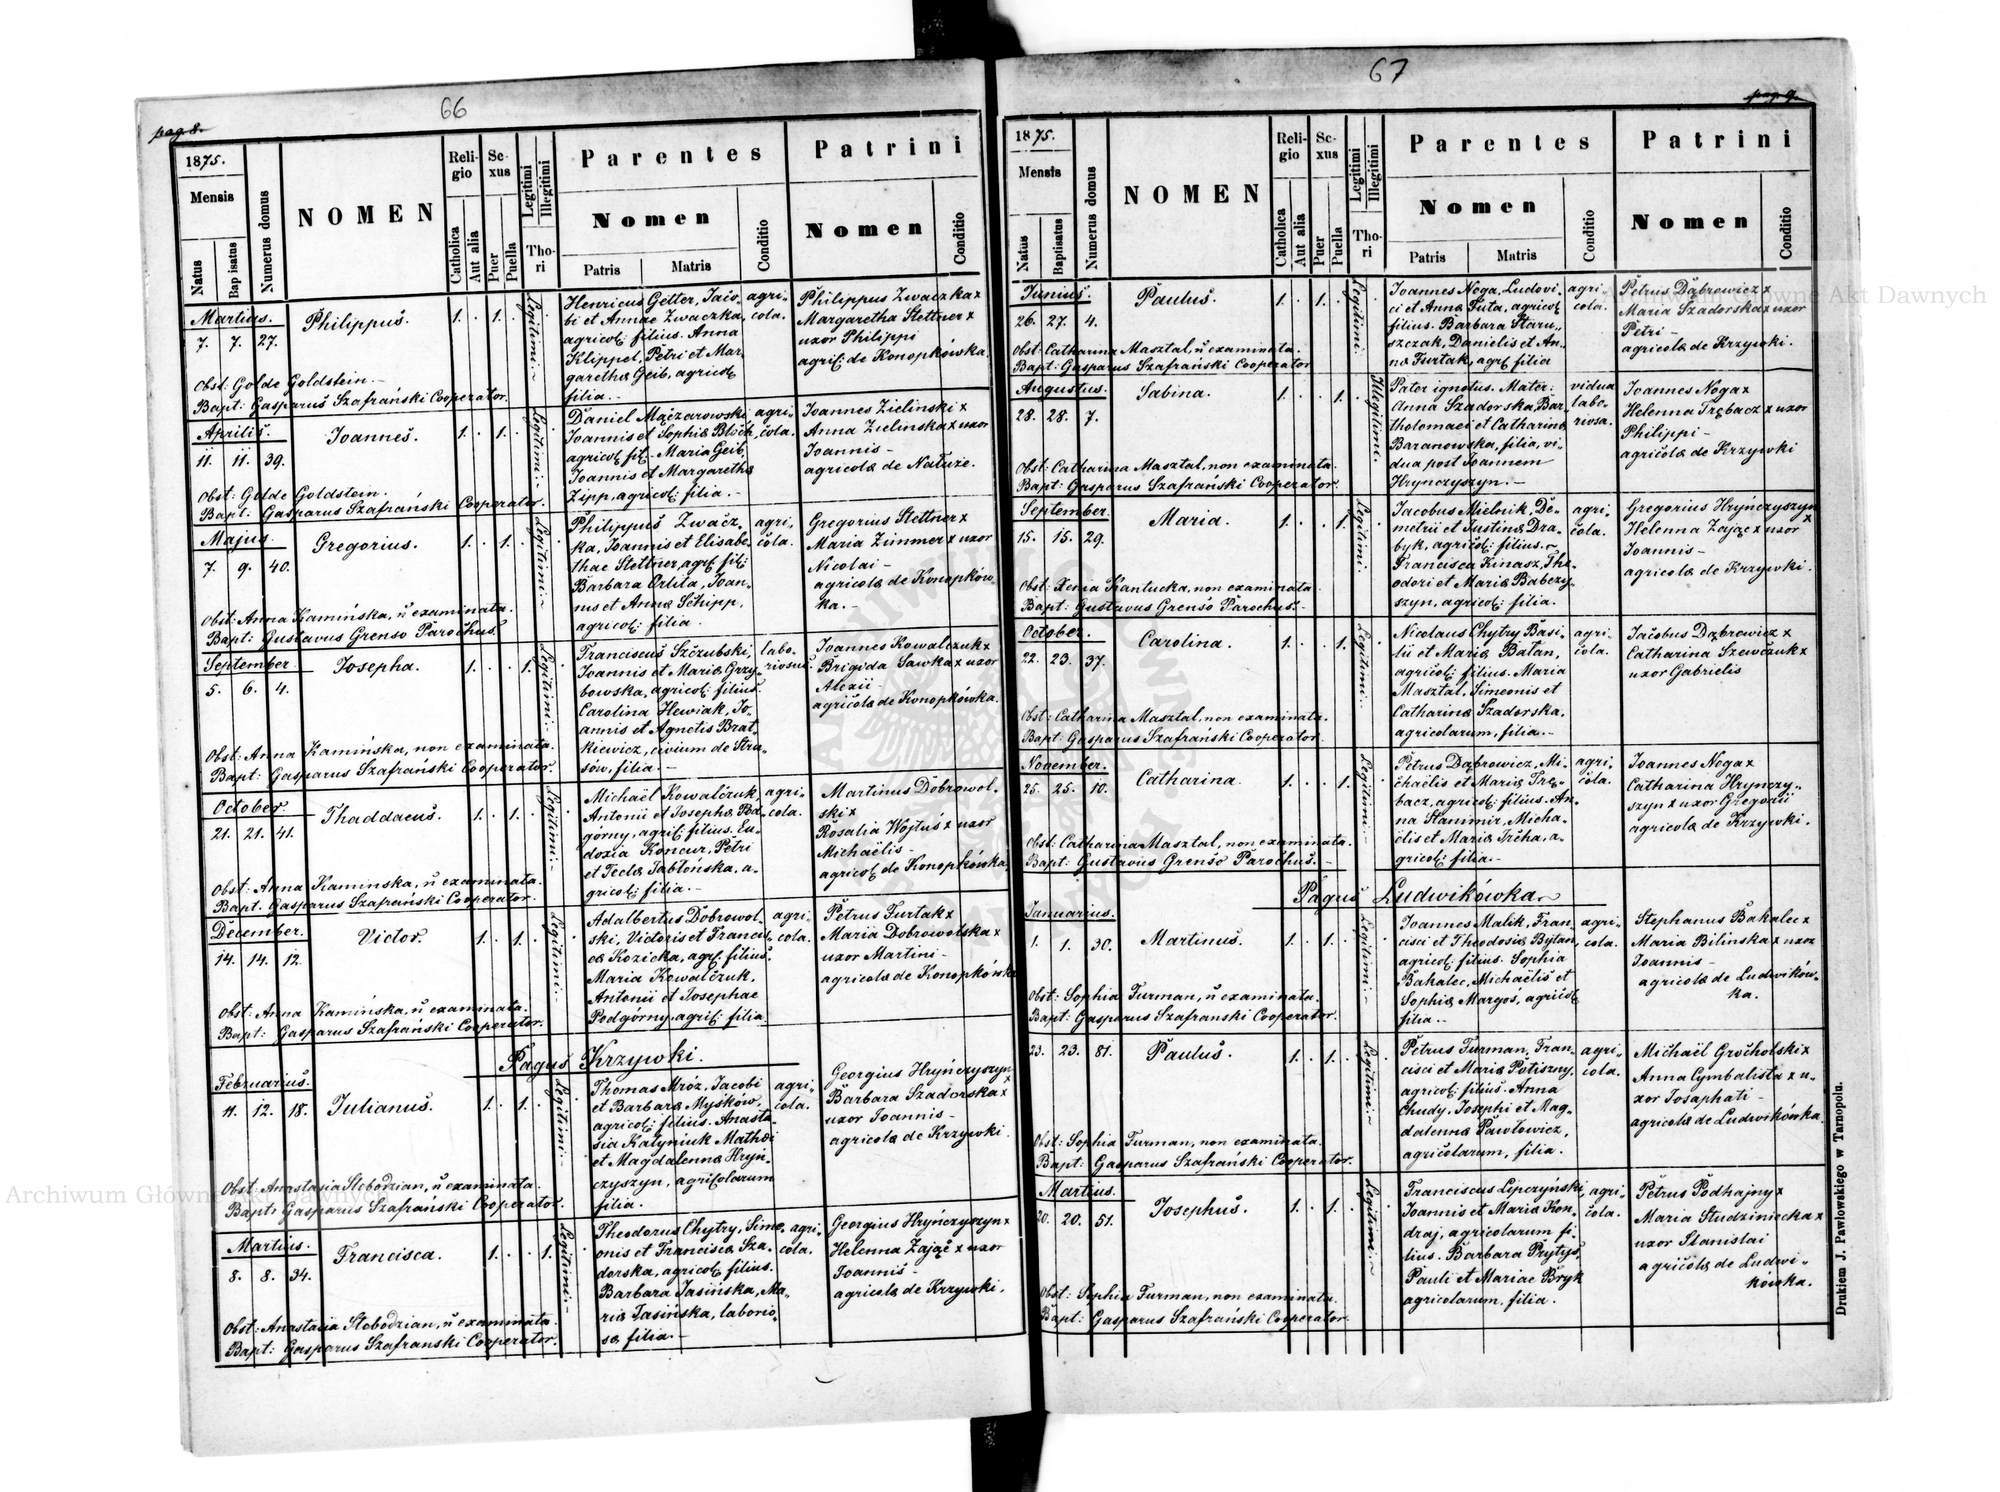 66
pag. 8.
1875.
Mensis
Natus
Baptisatus
Numerus domus
NOMEN
Religio
Catholica
Aut alia
Sexus
Puer
Puella
Legitimi
Illegitimi
Thori
Parentes
Nomen
Patris
Matris
Conditio
Patrini
Nomen
Conditio
Martius.
7. 7. 27.
Philippus.
1. . 1. .
Legitimi.
Henricus Getter, Jaco-
bi et Annae Zwaczka,
agricol: filius. Anna
Klippel, Petri et Mar-
garetha Geib, agricol:
filia.
agri-
cola.
Philippus Zwaczka x
Margaretha Stettner x
uxor Philippi
agric: de Konopkówka.
Obst: Golde Goldstein.
Bapt: Gasparus Szafrański Cooperator.
Aprilis.
11. 11. 39.
Joannes.
1. . 1. .
Legitimi.
Daniel Mączarowski
Joannis et Sophia Bloch,
agricol: fil. Maria Geib,
Joannis et Margaretha
Zipp, agricol: filia.
agri-
cola.
Joannes Zielinski x
Anna Zielinska x uxor
Joannis -
agricola de Nałuże.
Obst: Golde Goldstein.
Bapt: Gasparus Szafrański Cooperator.
Majus.
7. 9. 40.
Gregorius.
1. . 1. .
Legitimi.
Philippus Zwacz-
ka, Joannis et Elisabe-
thae Stettner, agr: fil:
Barbara Orlita, Joan-
nis et Anna Schipp,
agricol: filia.
agri-
cola.
Gregorius Stettner x
Maria Zimmer x uxor
Nicolai -
agricola de Konopków-
ka.
Obst: Anna Kamińska, n examinata.
Bapt: Gustavus Grenso Parochus.
September.
5. 6. 4.
Josepha.
1. . . 1.
Legitimi.
Franciscus Szczubski,
Joannis et Maria Grzy-
bowska, agricol: filius.
Carolina Hewiak, Jo-
annis et Agnetis Brat-
kiewicz, civium de Stra-
sów, filia.
labo-
riosus.
Joannes Kowalczuk x
Brigida Sawka x uxor
Alexii -
agricola de Konopkówka.
Obst: Anna Kamińska, non examinata.
Bapt: Gasparus Szafrański Cooperator.
October.
21. 21. 41.
Thaddaeus.
1. . 1. .
Legitimi.
Michaël Kowalczuk,
Antonii et Josepha Pod-
górny, agric: filius. Eu-
doxia Koncur, Petri
et Tecla Jabłońska, a-
gricol: filia.
agri-
cola.
Martinus Dobrowol-
ski x
Rosalia Wojtuś x uxor
Michaëlis -
agricol: de Konopkówka.
Obst: Anna Kaminska, n examinata.
Bapt. Gasparus Szafrański Cooperator.
December.
14. 14. 12.
Victor.
1. . 1. .
Legitimi.
Adalbertus Dobrowol-
ski, Victoris et Francis-
ca Kozicka, agr: filius.
Maria Kowalczuk,
Antonii et Josephae
Podgórny, agric: filia.
agri-
cola.
Petrus Furtak x
Maria Dobrowolska x
uxor Martini -
agricola de Konopkówka
Obst: Anna Kamińska, n examinata.
Bapt: Gasparus Szafrański Cooperator.
Pagus Krzywki.
Februarius.
11. 12. 18.
Julianus.
1. . 1. .
Legitimi.
Thomas Mróz, Jacobi
et Barbara Myśków,
agricol: filius. Anasta-
sia Kałyniuk Mathaei
et Magdalenna Hryń-
czyszyn, agricolarum
filia.
agri-
cola.
Georgius Hryńczyszyn x
Barbara Szadorska x
uxor Joannis -
agricola de Krzywki.
Obst: Anastasia Słobodzian, n examinata.
Bapt: Gasparus Szafrański Cooperator.
Martius.
8. 8. 34.
Francisca.
1. . . 1.
Legitimi.
Theodorus Chytry, Sime-
onis et Francisca Sza-
dorska, agricol: filius.
Barbara Jasińska, Ma-
ria Jasińska, laborio-
sa filia.
agri-
cola.
Georgius Hryńczyszyn x
Helenna Zając x uxor
Joannis -
agricola de Krzywki.
Obst: Anastasia Słobodzian, n examinata.
Bapt: Gasparus Szafranski Cooperator.
67
pag. 9.
1875.
Mensis
Natus
Baptisatus
Numerus domus
NOMEN
Religio
Catholica
Aut alia
Sexus
Puer
Puella
Legitimi
Illegitimi
Thori
Parentes
Nomen
Patris
Matris
Conditio
Patrini
Nomen
Conditio
Junius.
26. 27. 4.
Paulus.
1. . 1. .
Legitimi.
Joannes Noga, Ludovi-
ci et Anna Futa, agricol:
filius. Barbara Staru-
szczak, Danielis et An-
na Furtak, agr: filia
agri-
cola.
Petrus Dąbrowicz x
Maria Szadorska x uxor
Petri -
agricola de Krzywki.
Obst: Catharina Masztal, n examinata.
Bapt: Gasparus Szafrański Cooperator
Augustus.
28. 28. 7.
Sabina.
1. . . 1.
Illegitimi.
Pater ignotus. Mater:
Anna Szadorska, Bar-
tholomaei et Catharina
Baranowska, filia, vi-
dua post Joannem
Hrynczyszyn.
vidua
labo-
riosa.
Joannes Noga x
Helenna Trębacz x uxor
Philippi -
agricola de Krzywki
Obst: Catharina Masztal, non examinata.
Bapt: Gasparus Szafrański Cooperator.
September.
15. 15. 29.
Maria.
1. . . 1.
Legitimi.
Jacobus Mielnik, De-
metrii et Justina Dra-
byk, agricol: filius.
Francisca Kinasz, The-
odori et Maria Babczy-
szyn, agricol: filia.
agri-
cola.
Gregorius Hryńczyszyn
Helenna Zając x uxor
Joannis -
agricola de Krzywki.
Obst: Xenia Kantucka, non examinata
Bapt: Gustavus Grenso Parochus.
October.
22. 23. 37.
Carolina.
1. . . 1.
Legitimi.
Nicolaus Chytry Basi-
lii et Maria Bałan,
agricol: filius. Maria
Masztal, Simeonis et
Catharina Szadorska,
agricolarum, filia.
agri-
cola.
Jacobus Dąbrowicz x
Catharina Szewczuk x
uxor Gabrielis
Obst: Catharina Masztal, non examinata.
Bapt: Gasparus Szafrański Cooperator.
November.
25. 25. 10.
Catharina.
1. . . 1.
Legitimi.
Petrus Dąbrowicz, Mi-
chaëlis et Maria Trę-
bacz, agricol: filius. An-
na Stanimir, Micha-
ëlis et Maria Trcha, a-
gricol: filia.
agri-
cola.
Joannes Noga x
Catharina Hrynczy-
szyn x uxor Gregorii
agricola de Krzywki.
Obst: Catharina Masztal, non examinata.
Bapt: Gustavus Grenso Parochus.
Pagus Ludwikówka
Januarius.
1. 1. 30.
Martinus.
1. . 1. .
Legitimi.
Joannes Malik, Fran-
cisci et Theodosia Bylan,
agricol: filius. Sophia
Bakalec, Michaëlis et
Sophia Margoś, agricol:
filia.
agri-
cola.
Stephanus Bakalec x
Maria Bilinska x uxor
Joannis -
agricola de Ludwików-
ka.
Obst: Sophia Furman, n examinata.
Bapt: Gasparus Szafranski Cooperator.
23. 23. 81.
Paulus.
1. . 1. .
Legitimi.
Petrus Furman, Fran-
cisci et Maria Potiszny,
agricol: filius. Anna
Chudy, Josephi et Mag-
dalenna Pawłowicz,
agricolarum, filia.
agri-
cola.
Michaël Grocholski x
Anna Cymbalista x u-
xor Josaphati -
agricola de Ludwikówka
Obst: Sophia Furman, non examinata.
Bapt: Gasparus Szafrański Cooperator.
Martius.
20. 20. 51.
Josephus.
1. . 1. .
Legitimi.
Franciscus Lipczyński,
Joannis et Maria Kon-
draj, agricolarum fi-
lius. Barbara Prytys,
Pauli et Mariae Bryk
agricolarum, filia.
agri-
cola.
Petrus Podhajny x
Maria Studziniecka x
uxor Stanislai
agricola de Ludwi-
kowka.
Obst: Sophia Furman, non examinata.
Bapt: Gasparus Szafrański Cooperator.
Drukiem J. Pawłowskiego w Tarnopolu.
Archiwum Główne Akt Dawnych
Archiwum Główne Akt Dawnych